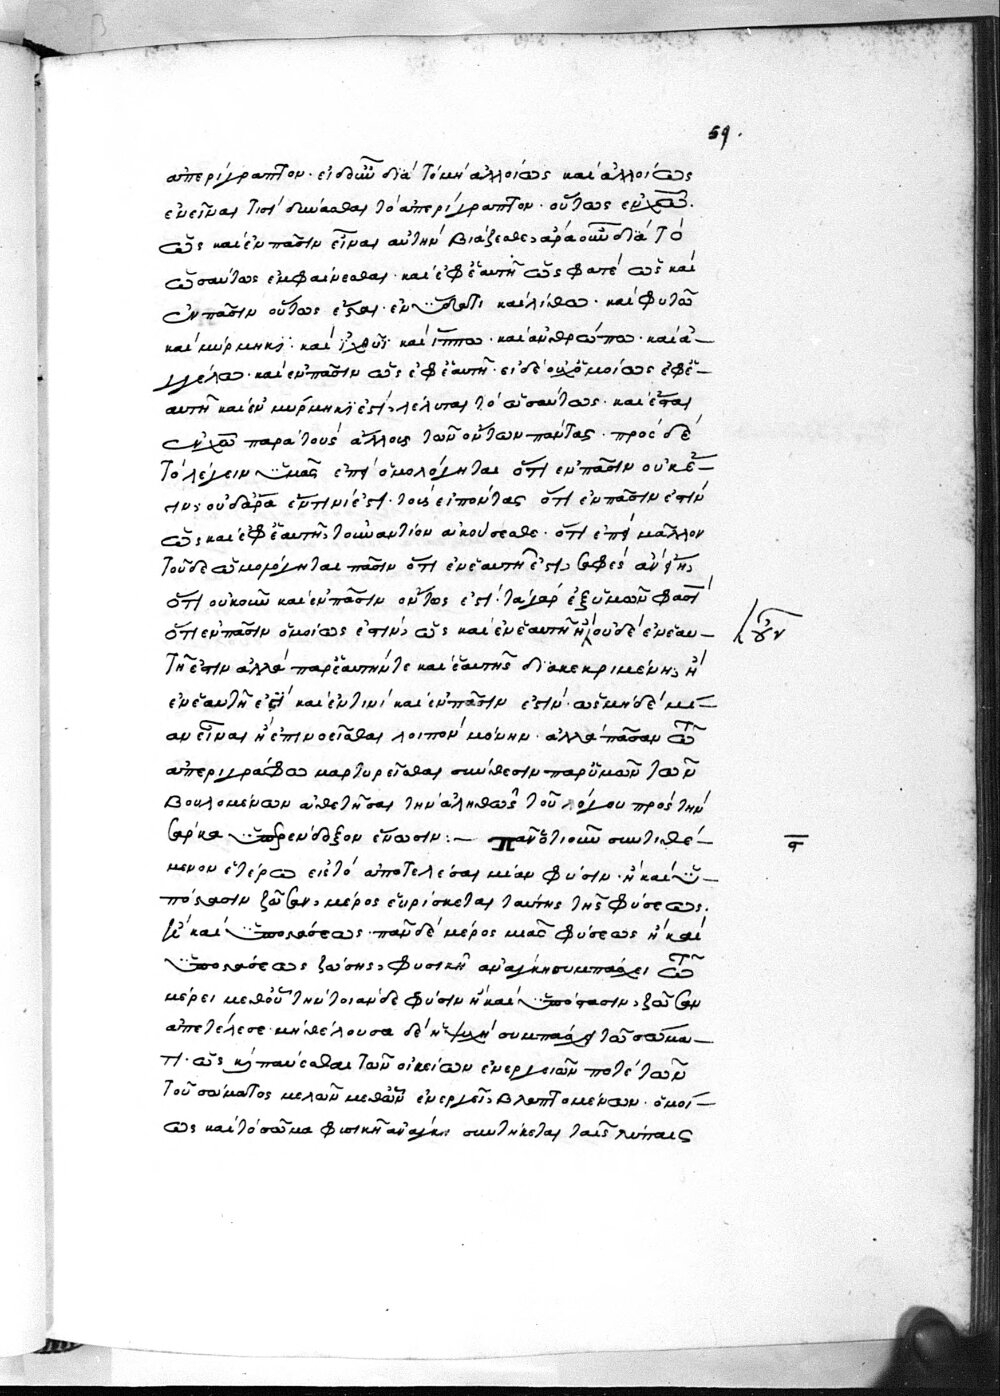 59.
ἀπερίγραπτον. εἰ δ' οὖν διὰ τὸ μὴ ἀλλοίως καὶ ἀλλοίως
ἐνεῖναι τισὶ δύνασθαι τὸ ἀπερίγραπτον. οὕτως ἐν
ὡς καὶ ἐν πᾶσιν εἶναι αὐτὴν βιάζεσθε, ἆρα οὖν διὰ τὸ
ὡσαύτως ἐμφαίνεσθαι. καὶ ἐφ' ἑαυτῆς ὥς φατε ὡς καὶ
ἐν πᾶσιν οὕτως ἔσται. ἐν καὶ λίθῳ. καὶ φυτῷ
καὶ μύρμηκι. καὶ ἰχθύϊ καὶ ἵππῳ. καὶ ἀνθρώπῳ. καὶ ἀ-
γγέλῳ. καὶ ἐν πᾶσιν ὡς ἐφ' ἑαυτῆς. εἰ δὲ οὐχ ὁμοίως ἐφ' ἑ-
αυτῆς καὶ ἐν μύρμηκί ἐστι, λέλυται τὸ ὡσαύτως. καὶ ἔσται
παρὰ τοὺς ἄλλους τῶν ὄντων πάντας. πρὸς δὲ
τὸ λέγειν ὑμᾶς ὁμολόγηται ὅτι ἐν πᾶσιν οὐκ ἔ-
στιν, οὐδ' ἄρα ἔν τινί ἐστι. τοὺς εἰπόντας ὅτι ἐν πᾶσίν ἐστιν
ὡς καὶ ἐφ' ἑαυτῆς, τοὐναντίον ἀκούσεσθε. ὅτι μᾶλλον
τοῦδε ὡμολόγηται πᾶσιν ὅτι ἐν ἑαυτῇ ἐστι,
ὅτι οὐκοῦν καὶ ἐν πᾶσιν οὕτως ἐστί. τὰ γὰρ ἐξ ὑμῶν φασὶ
ὅτι ἐν πᾶσιν ὁμοίως ἐστίν, ὡς καὶ ἐν ἑαυτῇ ἢ οὐδὲ ἐν ἑαυ-
τῇ ἐστιν ἀλλὰ παρ' ἑαυτήν τε καὶ ἑαυτῆς διακεκριμένη, ἢ
ἐν ἑαυτῇ ἐστὶ καὶ ἔν τινι καὶ ἐν πᾶσίν ἐστιν. ὡς μηδὲ μί-
αν εἶναι ἢ ἐπινοεῖσθαι λοιπὸν μόνην. ἀλλὰ πᾶσαν τῷ
ἀπεριγράφῳ μαρτυρεῖσθαι σύνθεσιν παρ' ὑμῶν τῶν
βουλομένων ἀθετῆσαι τὴν ἀληθῶς τοῦ λόγου πρὸς τὴν
σάρκα ἕνωσιν:– Πᾶν ὁτιοῦν συντιθέ-
μενον ἑτέρῳ εἰς τὸ ἀποτελέσαι μίαν φύσιν. ἢ καὶ ὑ-
πόστασιν ζῶσαν, μέρος εὑρίσκεται ταύτης τῆς φύσεως.
ἢ καὶ ὑποστάσεως. πᾶν δὲ μέρος μιᾶς φύσεως ἢ καὶ
ὑποστάσεως ζώσης, φυσικῇ ἀνάγκῃ συμπάσχει τῷ
μέρει μεθ' οὗ τὴν τοιάνδε φύσιν ἢ καὶ ὑπόστασιν, ζῶσαν
ἀπετέλεσε. μὴ θέλουσα δὲ ἡ ψυχὴ συμπάσχει τῷ σώμα-
τι. ὡς καὶ παύεσθαι τῶν οἰκείων ἐνεργειῶν ποτὲ τῶν
τοῦ σώματος μελῶν μεθ' ὧν ἐνεργεῖ, βλαπτομένων. ὁμοί-
ως καὶ τὸ σῶμα φυσικῇ ἀνάγκῃ συντήκεται ταῖς λύπαις